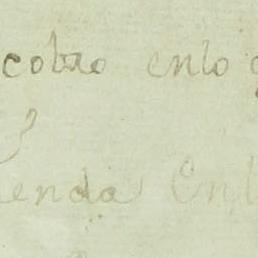 cobro enlo
enda Enl